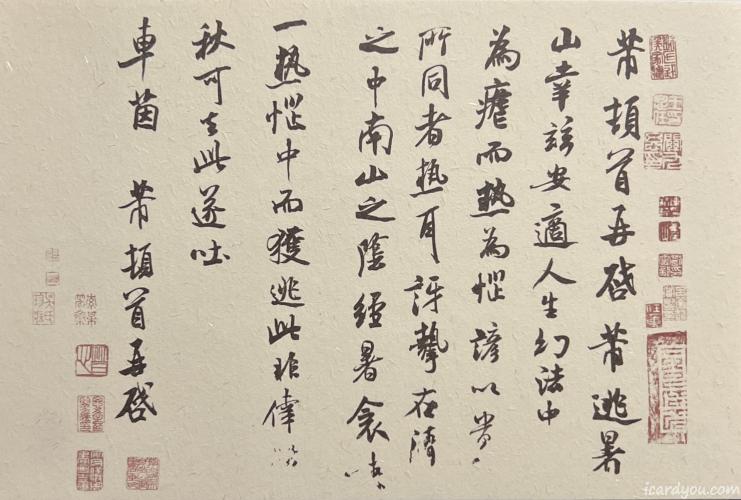 芾頓首再啓芾逃暑
山幸兹安適人生幻法中
為瘧而熱為惱諺以貴
所同者熱耳訝挚在清
之中南山之陰經暑衾
一熱惱中而獲逃此非偉
秋可去此遂吐
車茵 芾頓首再啓
icardyou.com